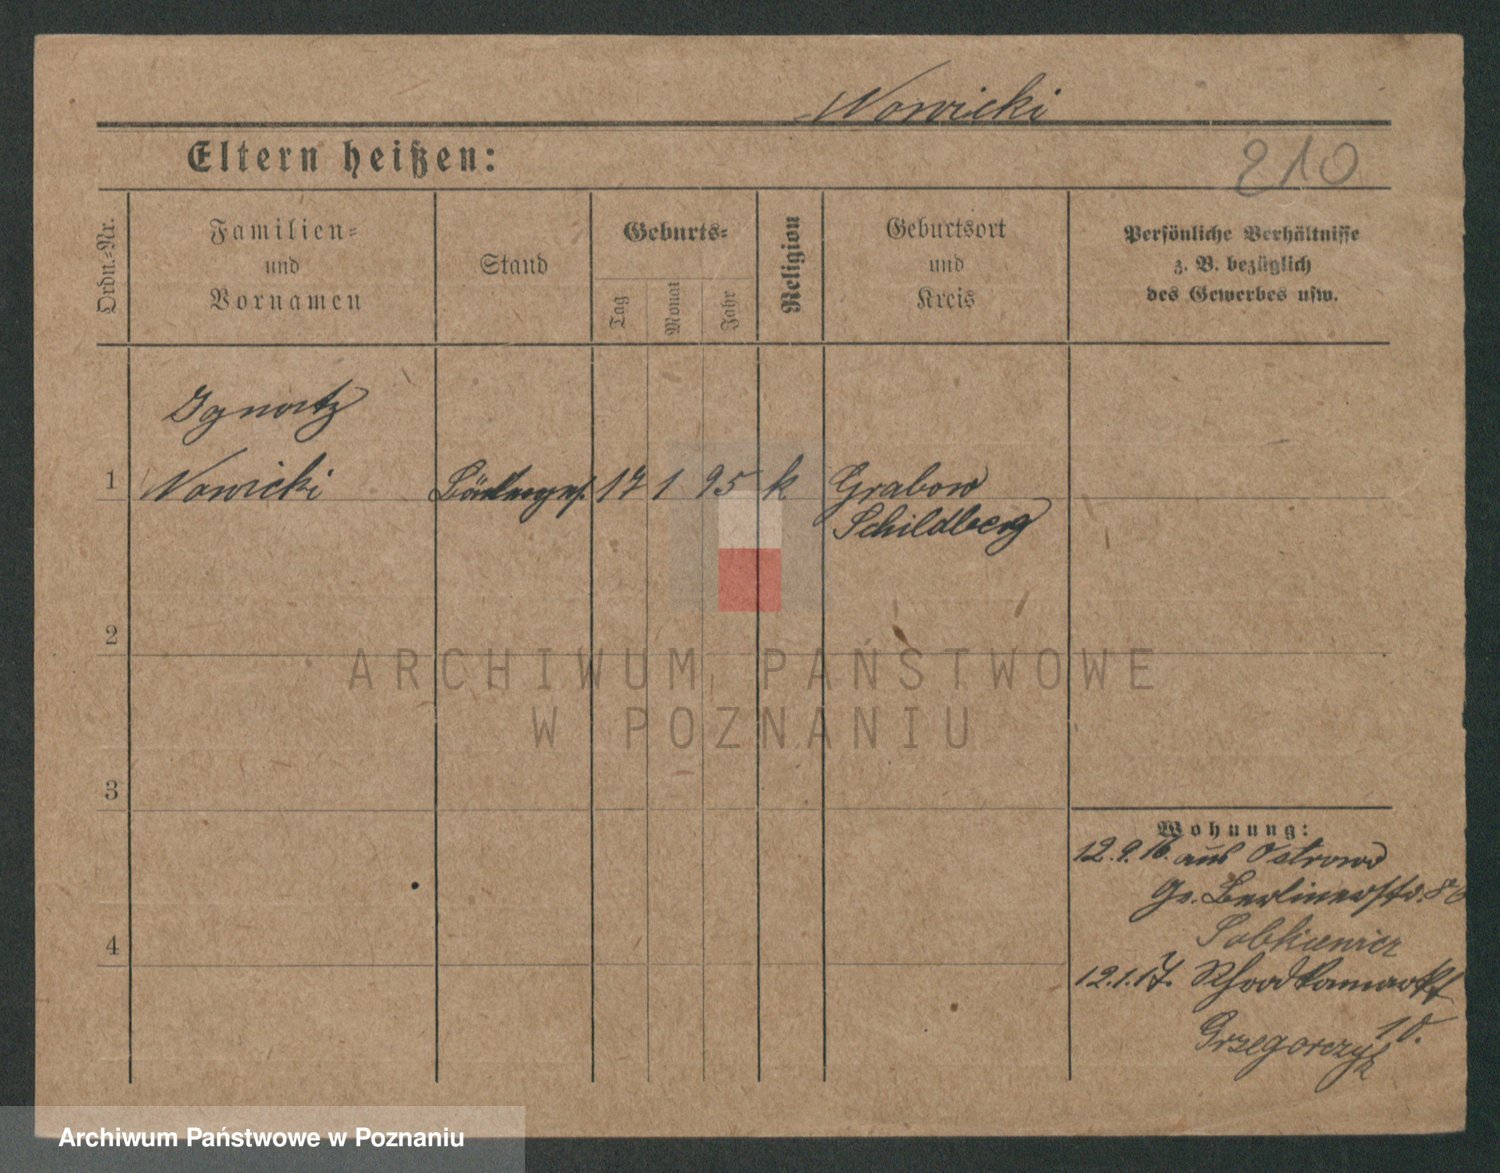 Nowicki
Eltern heißen:
210
Ordn.-Nr.
Familien-
und
Vornamen
Stand
Geburts-
Tag
Monat
Jahr
Religion
Geburtsort
und
Kreis
Persönliche Verhältnisse
z. B. bezüglich
des Gewerbes usw.
Ignatz
1 Nowicki Bäckerges. 17 1 95 k Grabow
Schildberg
2
ARCHIWUM PAŃSTWOWE
W POZNANIU
3
Wohnung:
12.9.16. aus Ostrowo
Gr. Berlinerstr. 80
Sobkiewicz
4
12.1.17.
10.
Grzegorczyk
Archiwum Państwowe w Poznaniu